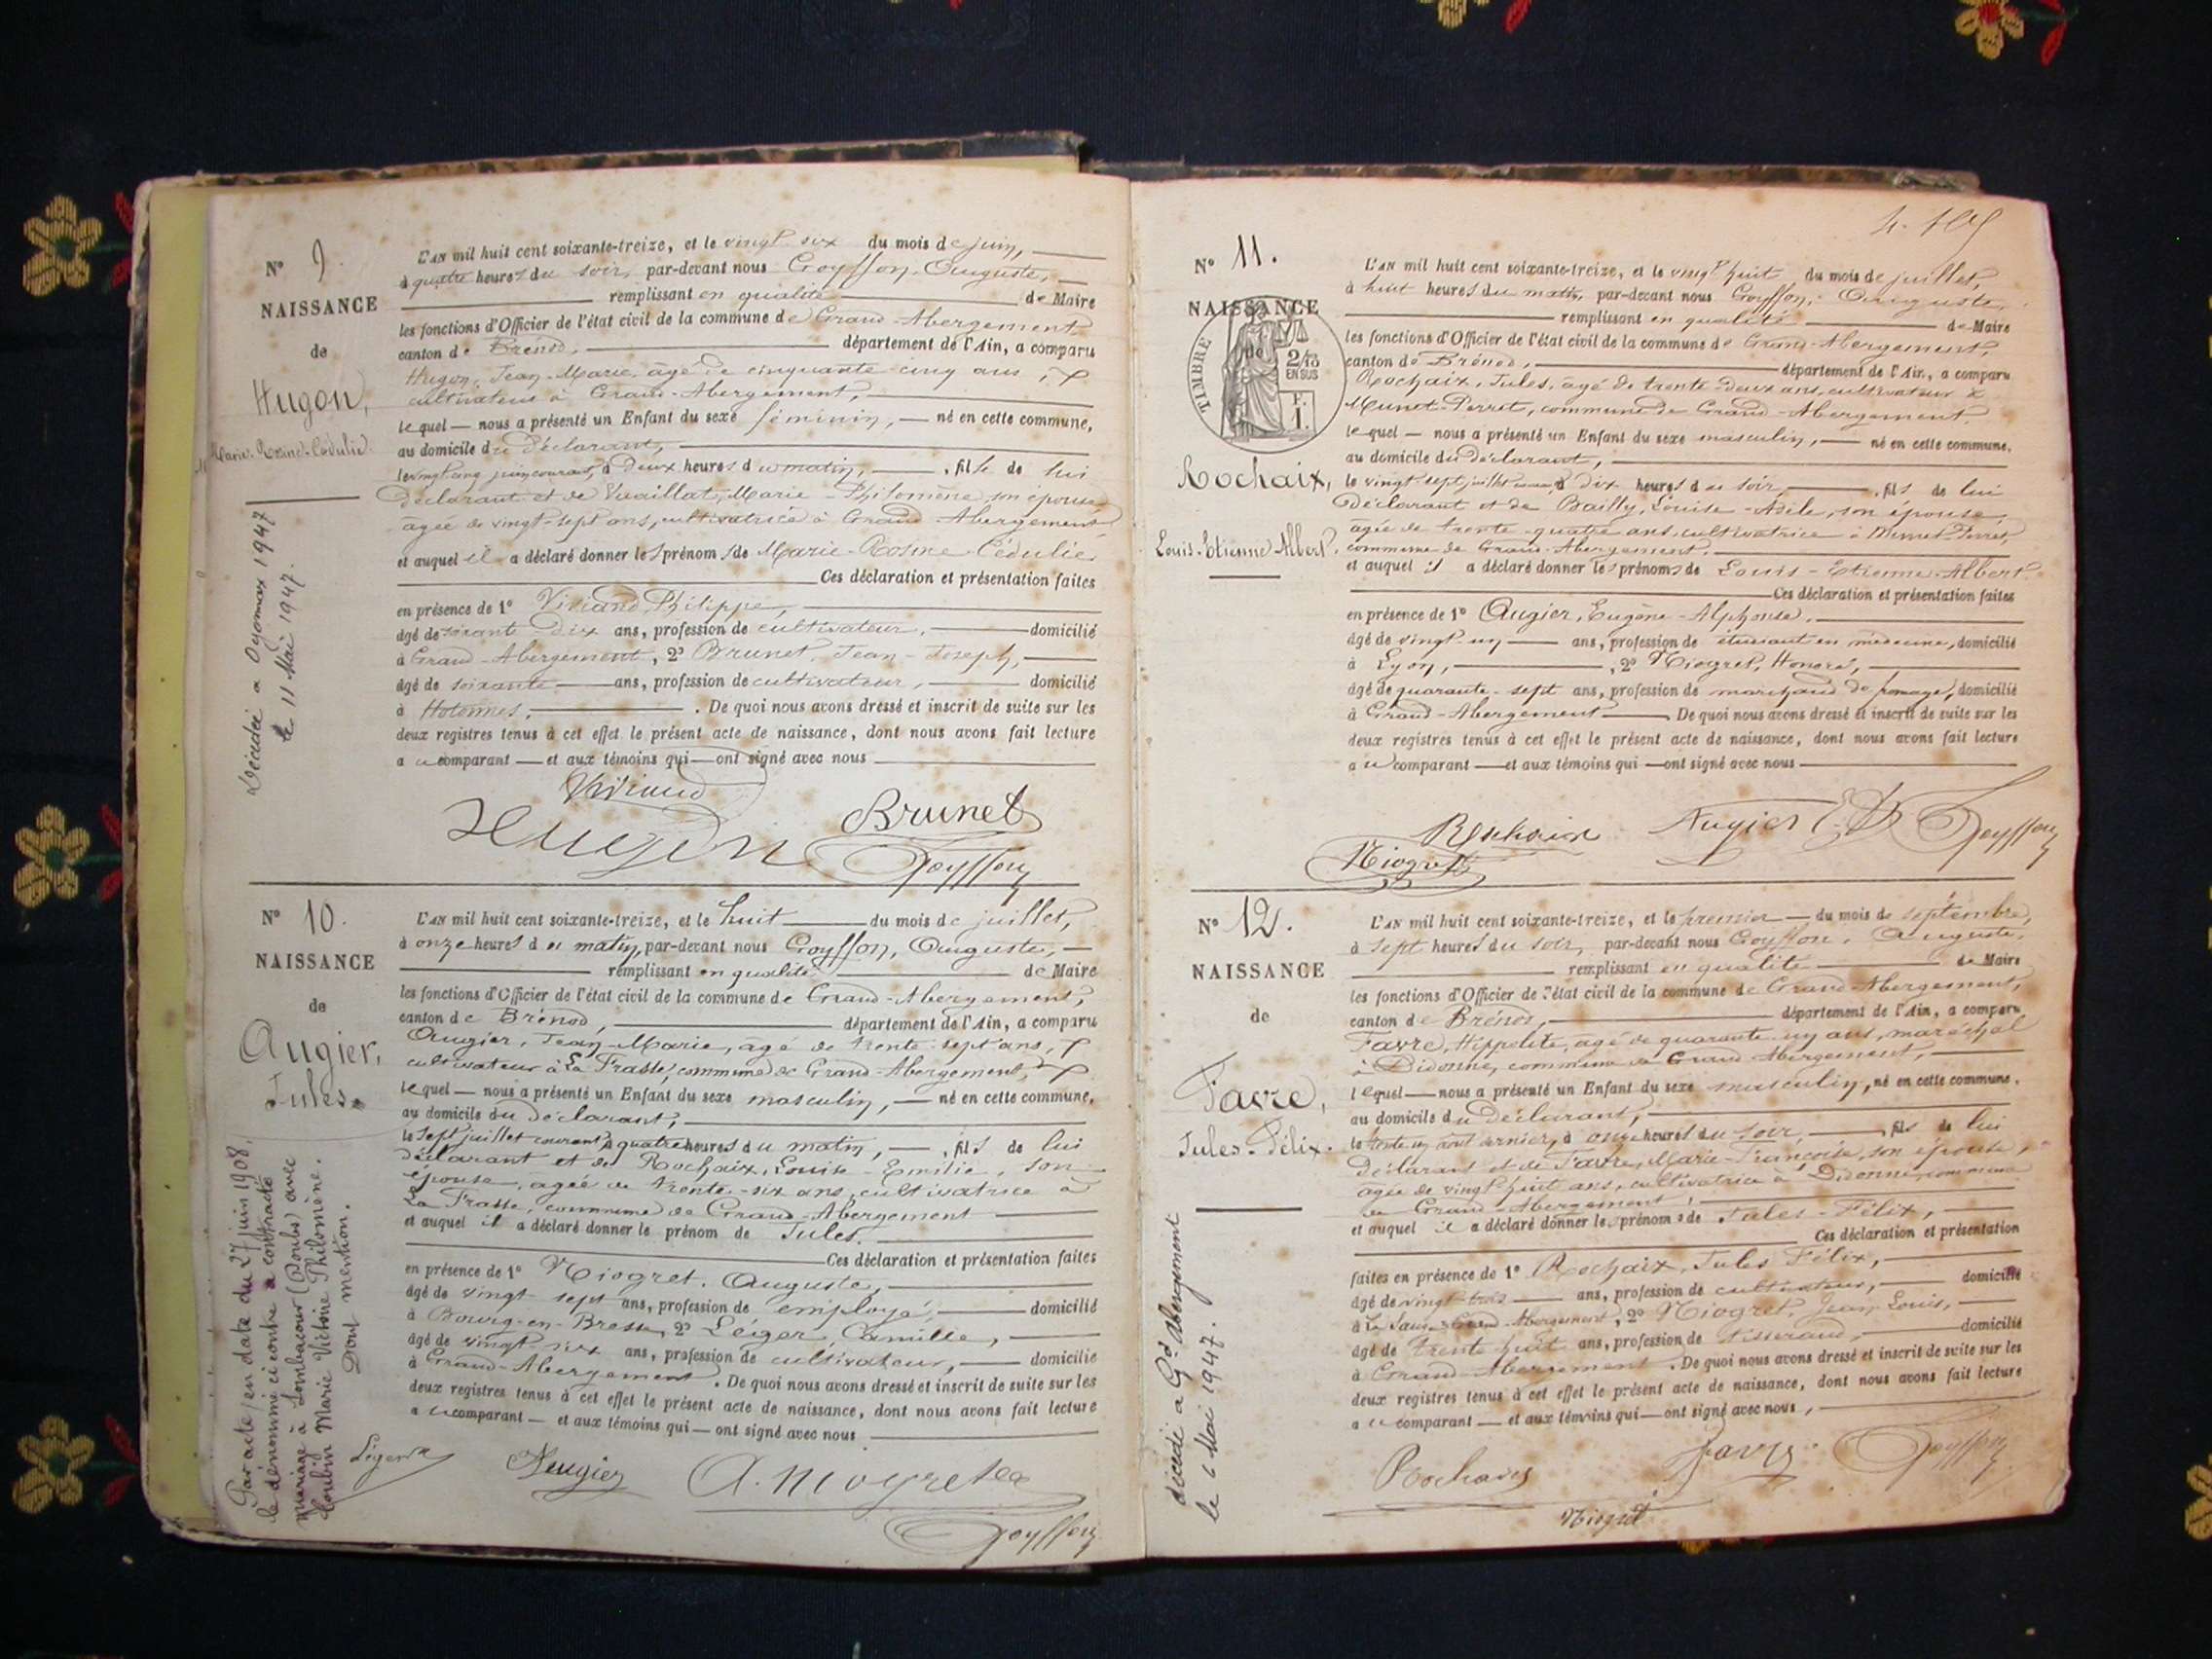 N° 9.
NAISSANCE
de
Hugon,
Marie-Rosine-Cédulie.
Décédée à Oyonnax
le 11 Mai 1947.
L'AN mil huit cent soixante-treize, et le vingt six du mois de juin,
à quatre heures du soir, par-devant nous Goyffon, Auguste,
remplissant en qualité de Maire
les fonctions d'Officier de l'état civil de la commune de Grand-Abergement
canton de Brénod, département de l'Ain, a comparu
Hugon, Jean-Marie, âgé de cinquante cinq ans,
cultivateur à Grand-Abergement,
lequel nous a présenté un Enfant du sexe féminin, né en cette commune,
au domicile du déclarant,
le vingt cinq juin courant, à deux heures du matin, fille de lui
déclarant et de Vuaillat, Marie-Philomène, son épouse,
âgée de vingt-sept ans, cultivatrice à Grand-Abergement
et auquel il a déclaré donner les prénoms de Marie-Rosine-Cédulie.
Ces déclaration et présentation faites
en présence de 1° Viviand, Philippe,
âgé de soixante-dix ans, profession de cultivateur, domicilié
à Grand-Abergement, 2° Brunet, Jean-Joseph,
âgé de soixante ans, profession de cultivateur, domicilié
à Hotonnes, . De quoi nous avons dressé et inscrit de suite sur les
deux registres tenus à cet effet le présent acte de naissance, dont nous avons fait lecture
au comparant et aux témoins qui ont signé avec nous
Viviand
Hugon Brunet
Goyffon
N° 10.
NAISSANCE
de
Augier,
Jules.
Par acte, en date du 27 juin 1908,
le dénommé ci contre a contracté
mariage à Lombacour (Doubs) avec
Marie Victoire Philomène.
Dont mention.
L'AN mil huit cent soixante-treize, et le huit du mois de juillet,
à onze heures du matin, par-devant nous Goyffon, Auguste,
remplissant en qualité de Maire
les fonctions d'Officier de l'état civil de la commune de Grand-Abergement,
canton de Brénod, département de l'Ain, a comparu
Augier, Jean-Marie, âgé de trente-sept ans,
cultivateur à La Frasse, commune de Grand-Abergement,
lequel nous a présenté un Enfant du sexe masculin, né en cette commune,
au domicile du déclarant,
le sept juillet courant, à quatre heures du matin, fils de lui
déclarant et de Rochaix, Louise-Emilie, son
épouse, âgée de trente-six ans, cultivatrice à
La Frasse, commune de Grand-Abergement
et auquel il a déclaré donner le prénom de Jules.
Ces déclaration et présentation faites
en présence de 1° Niogret, Auguste,
âgé de vingt-sept ans, profession de employé, domicilié
à Bourg-en-Bresse, 2° Léger, Camille,
âgé de vingt-six ans, profession de cultivateur, domicilié
à Grand-Abergement. De quoi nous avons dressé et inscrit de suite sur les
deux registres tenus à cet effet le présent acte de naissance, dont nous avons fait lecture
au comparant et aux témoins qui ont signé avec nous
Léger Augier A. Niogret
Goyffon
N° 11.
NAISSANCE
de
TIMBRE
2/10
EN SUS
F.
1.
Rochaix,
Louis-Etienne Albert.
L'AN mil huit cent soixante-treize, et le vingt huit du mois de juillet,
à huit heures du matin, par-devant nous Goyffon, Auguste,
remplissant en qualité de Maire
les fonctions d'Officier de l'état civil de la commune de Grand-Abergement,
canton de Brénod, département de l'Ain, a comparu
Rochaix, Jules, âgé de trente-deux ans, cultivateur à
Munet-Perret, commune de Grand-Abergement,
lequel nous a présenté un Enfant du sexe masculin, né en cette commune,
au domicile du déclarant,
le vingt sept juillet courant, à dix heures du soir, fils de lui
déclarant et de Bailly, Louise-Adile, son épouse,
âgée de trente-quatre ans, cultivatrice à Munet-Perret,
commune de Grand-Abergement.
et auquel il a déclaré donner les prénoms de Louis-Etienne-Albert.
Ces déclaration et présentation faites
en présence de 1° Augier, Eugène-Alphonse,
âgé de vingt-un ans, profession de étudiant en médecine, domicilié
à Lyon, , 2° Niogret, Honoré,
âgé de quarante-sept ans, profession de marchand de fromage, domicilié
à Grand-Abergement De quoi nous avons dressé et inscrit de suite sur les
deux registres tenus à cet effet le présent acte de naissance, dont nous avons fait lecture
au comparant et aux témoins qui ont signé avec nous
Rochaix Augier Goyffon
Niogret
N° 12.
NAISSANCE
de
Favre,
Jules-Félix.
décédé à Gd Abergement
le 6 Mai 1947.
L'AN mil huit cent soixante-treize, et le premier du mois de septembre,
à sept heures du soir, par-devant nous Goyffon, Auguste,
remplissant en qualité de Maire
les fonctions d'Officier de l'état civil de la commune de Grand-Abergement,
canton de Brénod, département de l'Ain, a comparu
Favre, Hippolite, âgé de quarante-un ans, maréchal
à Didonne, commune de Grand-Abergement,
lequel nous a présenté un Enfant du sexe masculin, né en cette commune,
au domicile du déclarant,
le trente un août dernier, à onze heures du soir, fils de lui
déclarant et de Favre, Marie-Françoise, son épouse,
âgée de vingt huit ans, cultivatrice à Didonne, commune
de Grand-Abergement,
et auquel il a déclaré donner les prénoms de Jules-Félix,
Ces déclaration et présentation
faites en présence de 1° Rochaix, Jules Félix,
âgé de vingt trois ans, profession de cultivateur, domicilié
à Grand-Abergement, 2° Niogret, Jean Louis,
âgé de trente huit ans, profession de tisserand, domicilié
à Grand-Abergement. De quoi nous avons dressé et inscrit de suite sur les
deux registres tenus à cet effet le présent acte de naissance, dont nous avons fait lecture
au comparant et aux témoins qui ont signé avec nous,
Rochaix Favre Goyffon
Niogret